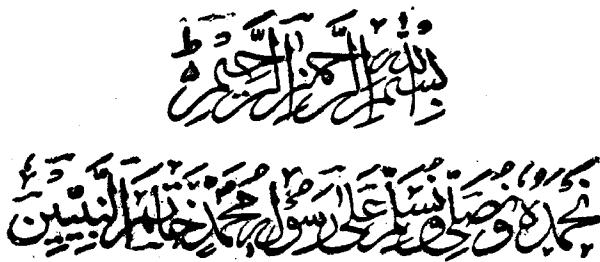 بِسْمِ اللّٰهِ الرَّحْمٰنِ الرَّحِيْمِ ؕ
نَحْمَدُهٗ وَنُصَلِّيْ وَنُسَلِّمُ عَلٰى رَسُوْلِهٖ مُحَمَّدٍ خَاتَمِ النَّبِيِّيْنَ